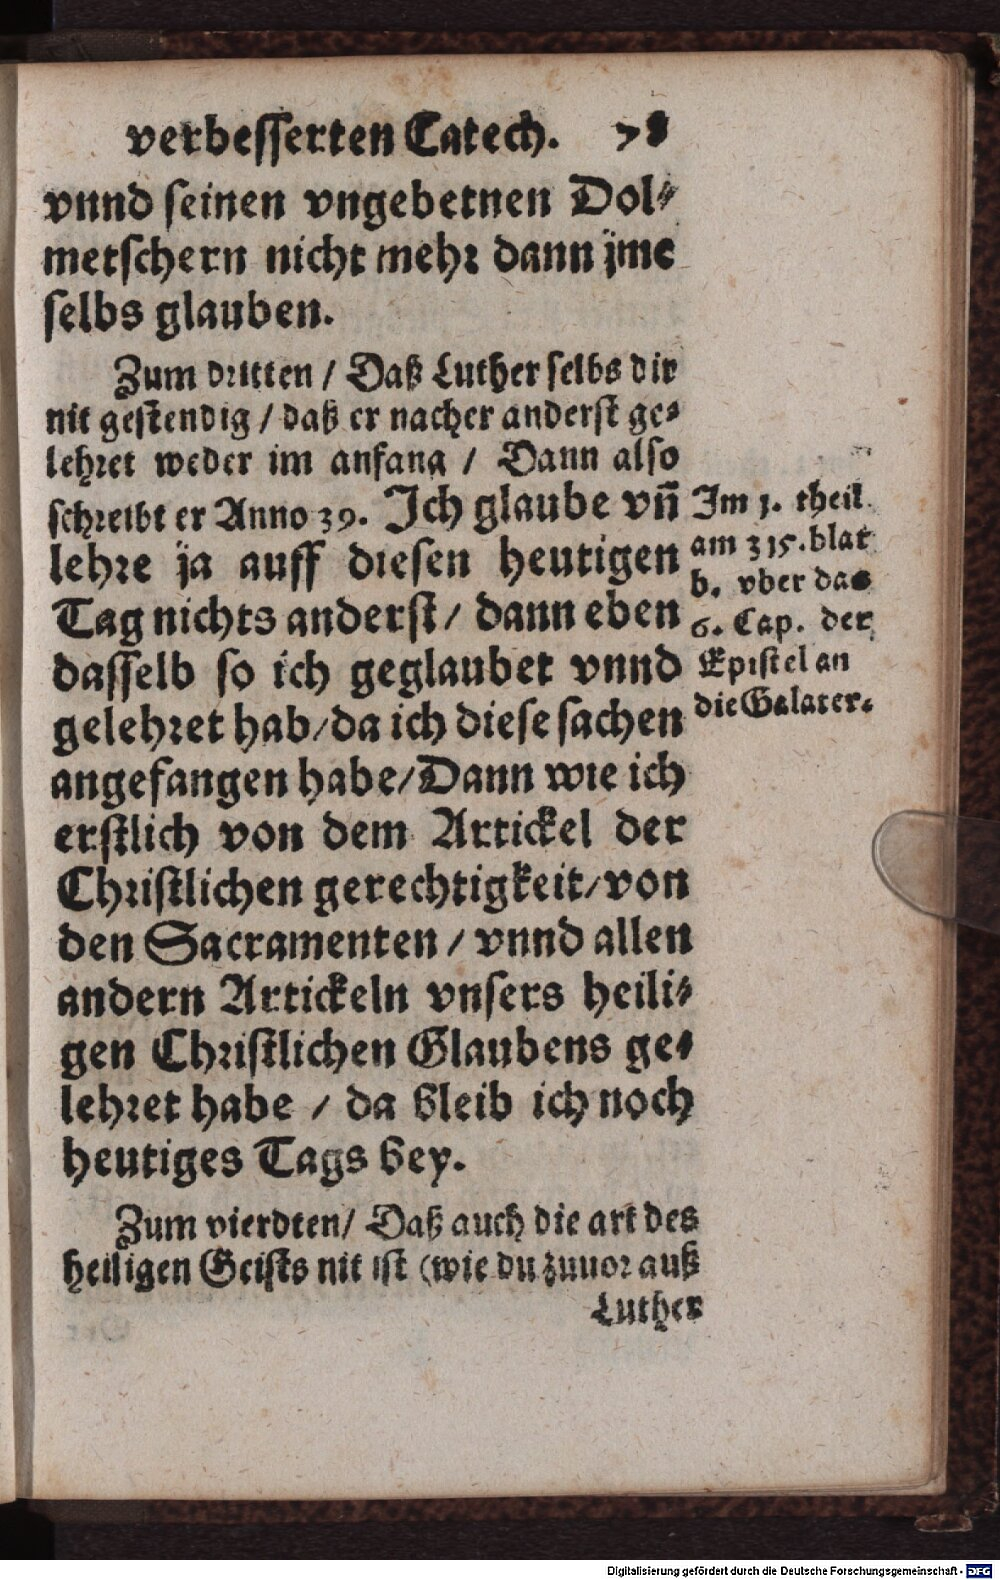 verbesserten Catech. 78
vnnd seinen vngebetnen Dol-
metschern nicht mehr dann jme
selbs glauben.
Zum dritten / Daß Luther selbs dir
nit gestendig / daß er nacher anderst ge-
lehret weder im anfang / Dann also
schreibt er Anno 39. Ich glaube vñ
lehre ja auff diesen heutigen
Tag nichts anderst / dann eben
dasselb so ich geglaubet vnnd
gelehret hab / da ich diese sachen
angefangen habe / Dann wie ich
erstlich von dem Artickel der
Christlichen gerechtigkeit / von
den Sacramenten / vnnd allen
andern Artickeln vnsers heili-
gen Christlichen Glaubens ge-
lehret habe / da bleib ich noch
heutiges Tags bey.
Im 1. theil
am 315. blat
b. vber das
6. Cap. der
Epistel an
die Galater.
Zum vierdten / Daß auch die art des
heiligen Geists nit ist (wie du zuuor auß
Luther
Digitalisierung gefördert durch die Deutsche Forschungsgemeinschaft - DFG